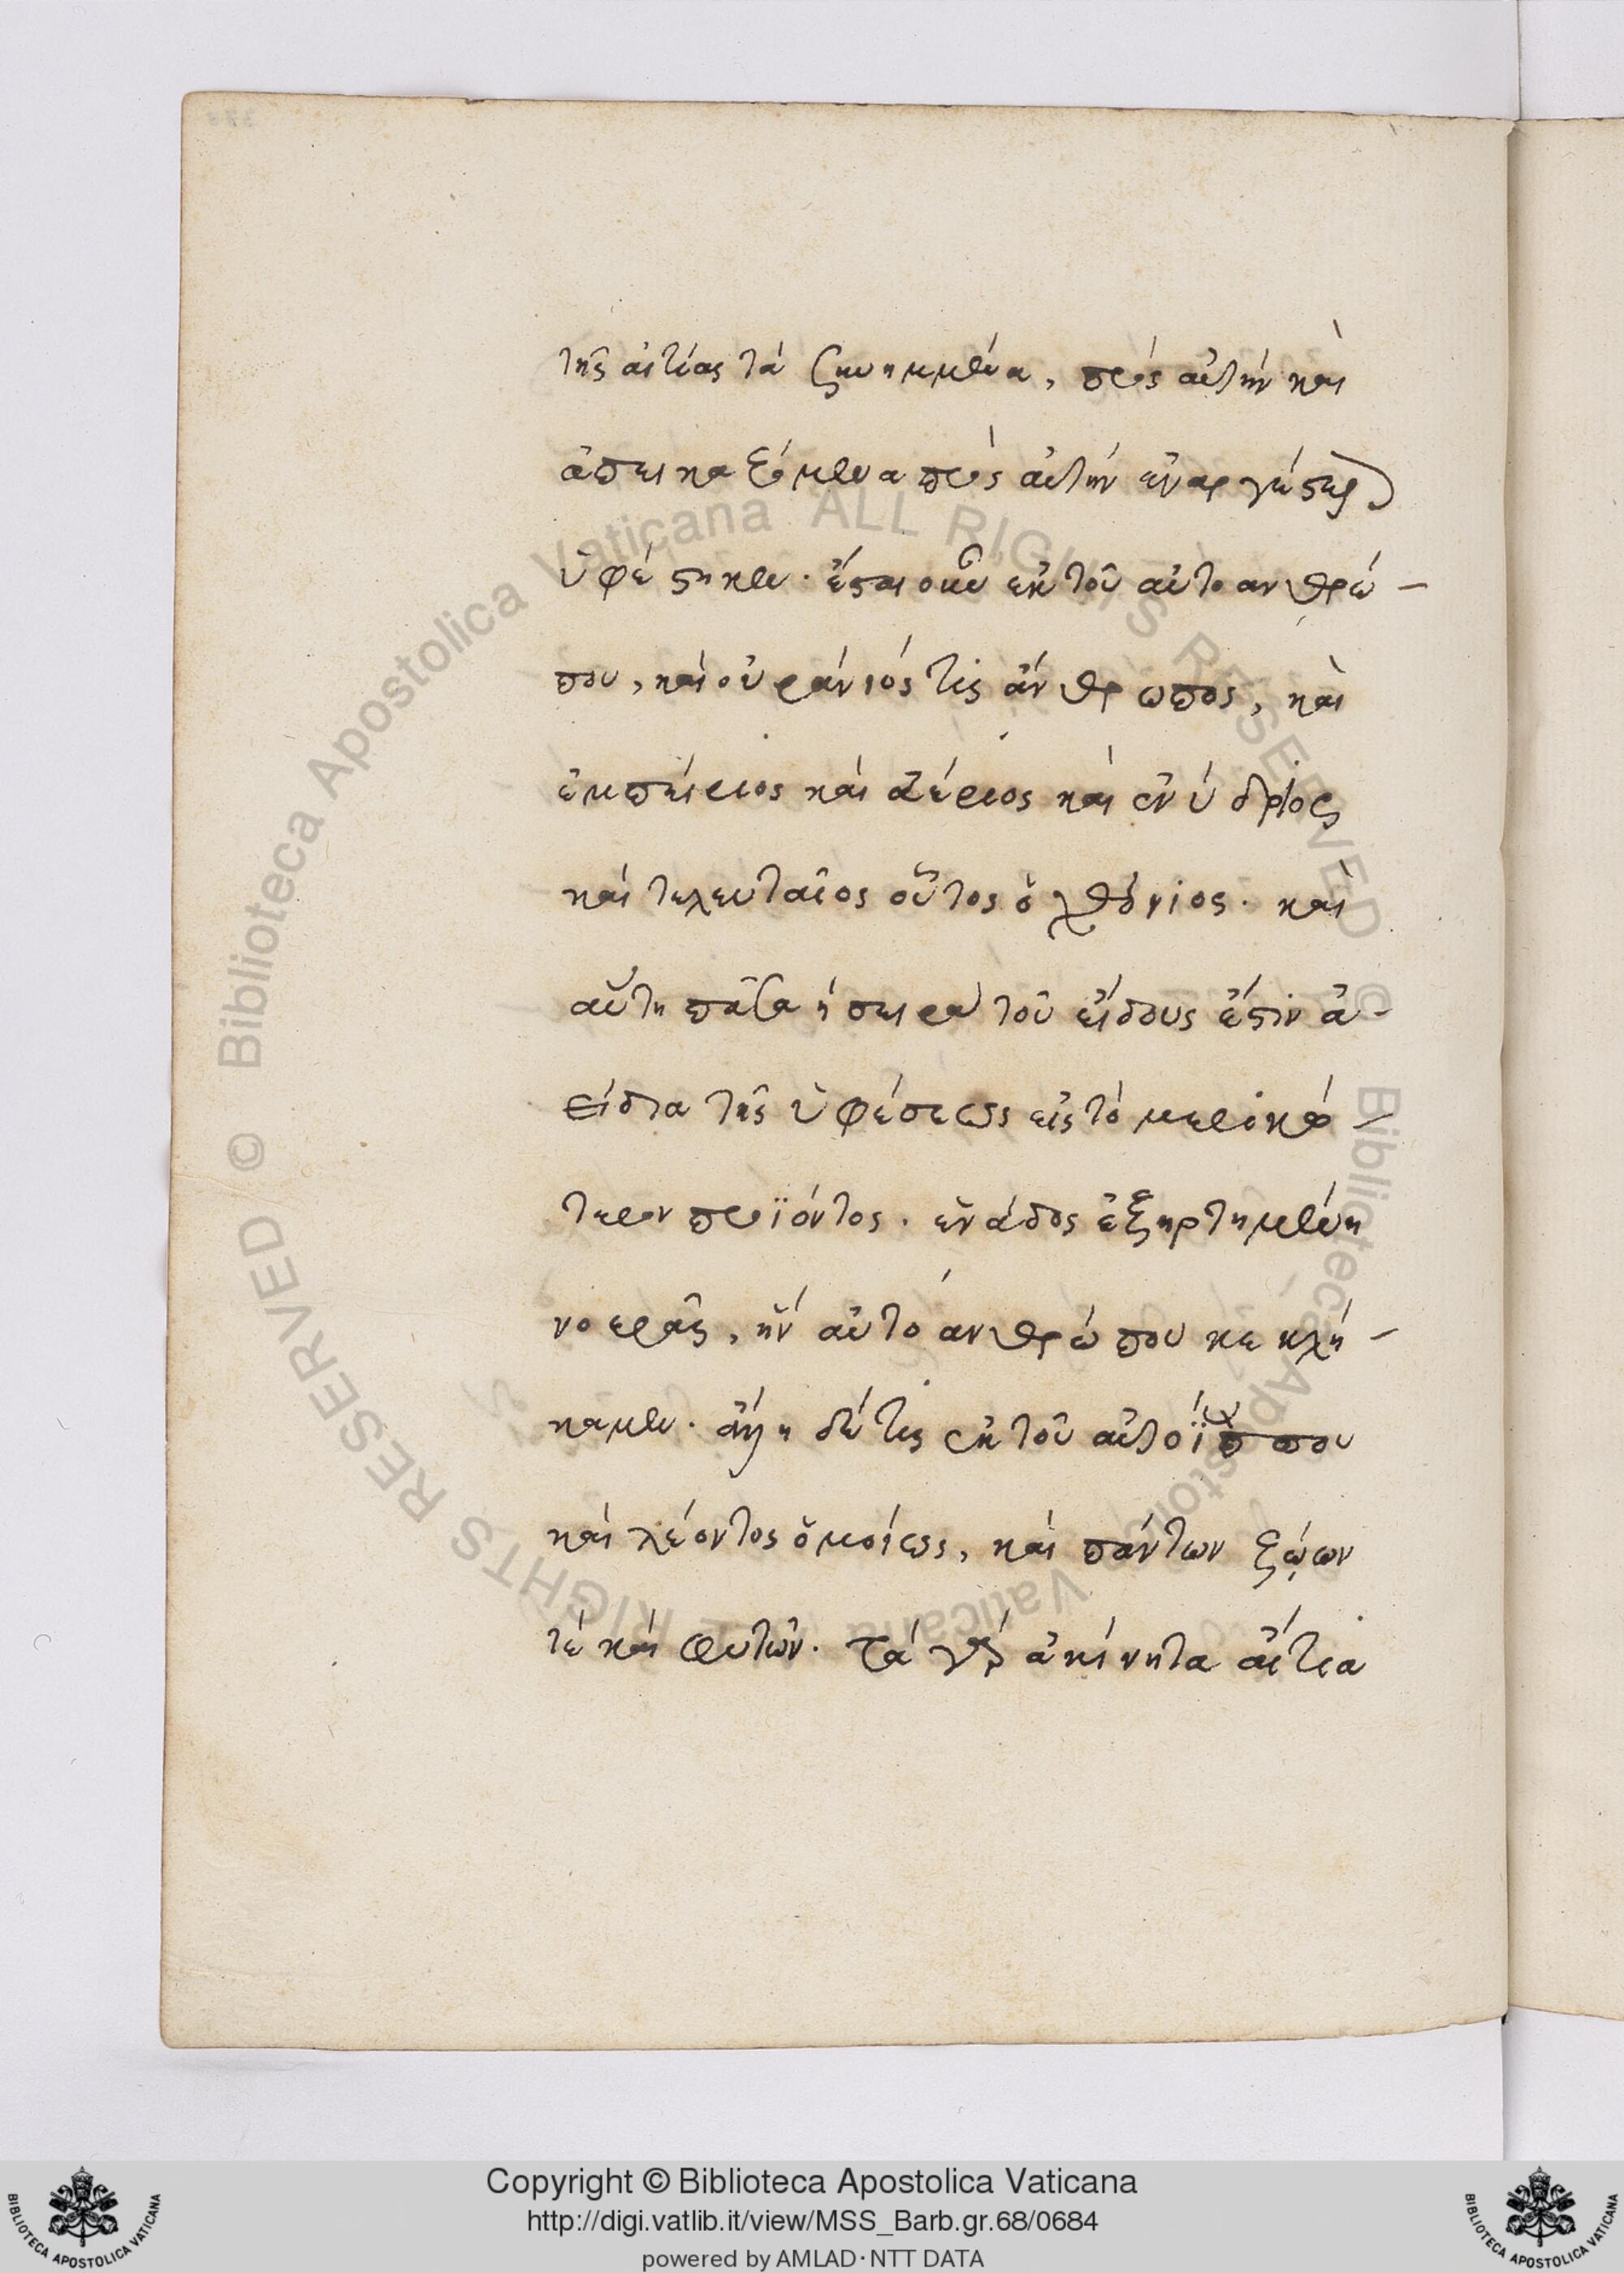 τῆς αἰτίας τὰ συνημμένα, πρὸς αὐτὴν καὶ
ἀπεικαζόμενα πρὸς αὐτὴν ἐναργέστερ
ὑφέστηκεν. ἔσται οὖν ἐκ τοῦ αὐτοανθρώ-
που, καὶ οὐράνιός τις ἄνθρωπος, καὶ
ἐμπύριος καὶ ἀέριος καὶ ἐνύδριος
καὶ τελευταῖος οὗτος ὁ χθόνιος. καὶ
αὕτη πᾶσα ἡ σειρὰ τοῦ εἴδους ἐστὶν ἀ-
είδια τῆς ὑφέσεως εἰς τὸ μερικώ-
τερον προϊόντος. ἑνάδος ἐξηρτημένη
νοερᾶς, ἣν αὐτὸ ἀνθρώπου κεκλή-
καμεν. ἄλλη δέ τις ἐκ τοῦ αὐτοΐππου
καὶ λέοντος ὁμοίως, καὶ πάντων ζώων
τὲ καὶ φυτῶν. τὰ γὰρ ἀκίνητα αἴτια
Biblioteca Apostolica Vaticana ALL RIGHTS RESERVED ©
Biblioteca Apostolica Vaticana ALL RIGHTS RESERVED ©
Copyright © Biblioteca Apostolica Vaticana
http://digi.vatlib.it/view/MSS_Barb.gr.68/0684
powered by AMLAD·NTT DATA
BIBLIOTECA APOSTOLICA VATICANA
BIBLIOTECA APOSTOLICA VATICANA